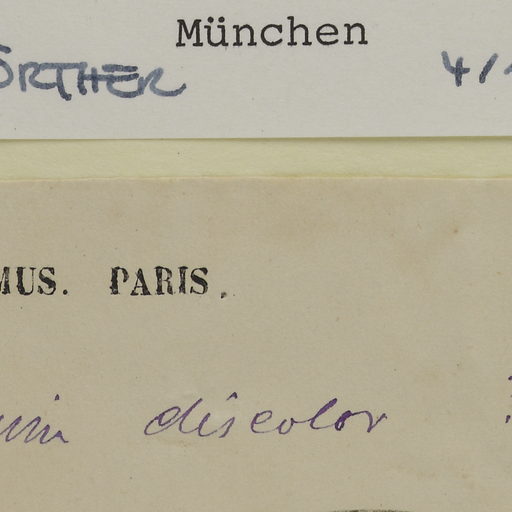 München
ÖRTHER 4/
MUS. PARIS.
discolor